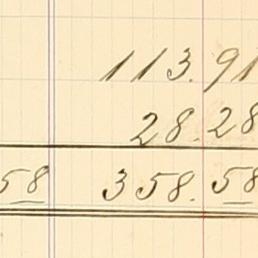 113.91
28.28
58 358.58